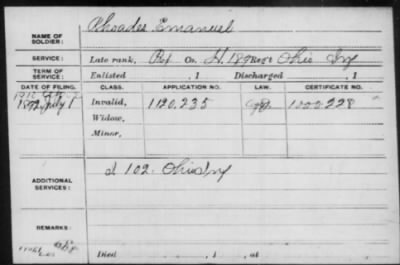 Rhoades Emanuel
NAME OF SOLDIER:
SERVICE: Late rank, Pvt Co. H. 189 Reg't Ohio Inf
TERM OF SERVICE: Enlisted , 1 Discharged , 1
DATE OF FILING. CLASS. APPLICATION NO. LAW. CERTIFICATE NO.
1892 July 1 Invalid, 1120,235 1000.228
Widow,
Minor,
ADDITIONAL SERVICES: d 102. Ohio Inf
REMARKS:
Died , 1 , at